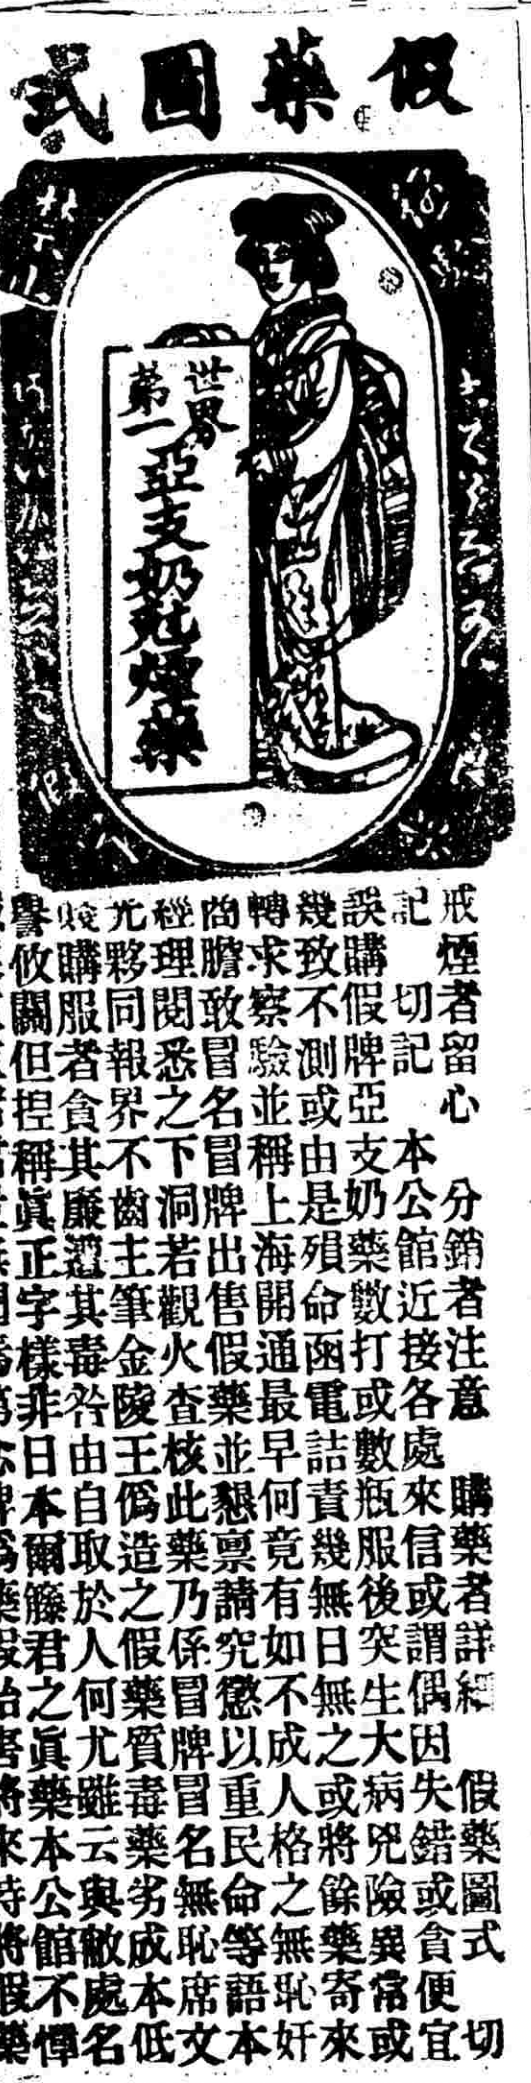 假藥圖式
世界
第一
亞支奶戒煙藥
戒煙者留心 分銷者注意 購藥者詳細 假藥圖式 切
記 切記 本公館近接各處來信或謂偶因失錯或貪便宜
誤購假牌亞支奶藥數打或數瓶服後突生大病兇險異常或
幾致不測或由是殞命函電詰責幾無日無之或將餘藥寄來
轉求察驗並稱上海開通最早何竟有如不成人格之無恥奸
商膽敢冒名冒牌出售假藥並懇禀請究懲以重民命等語本
經理閱悉之下洞若觀火查核此藥乃係冒牌冒名無恥席文
光夥同報界不齒主筆金陵王僞造之假藥質毒藥劣成本低
購服者貪其廉遭其毒咎由自取於人何尤雖云與敝處名
譽攸關但捏稱眞正字樣非日本爾籐君之眞藥本公館不憚